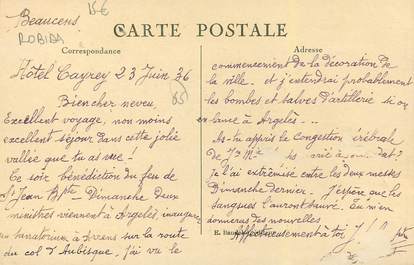 Beaucens
15€
ROBIDA
CARTE POSTALE
Correspondance
Adresse
65
Hôtel Cayrey 23 Juin 36
Bien cher neveu,
Excellent voyage, non moins
excellent séjour dans cette jolie
vallée que tu as vue!
Ce soir bénédiction du feu de
St Jean Bpte - Dimanche deux
ministres viennent à Argelès, inaugurer
un sanatorium à Arrens sur la route
du col d'Aubisque, j'ai vu le
commencement de la décoration de
la ville. et j'entendrai probablement
les bombes et salves d'artillerie si on
en lance à Argelès...
As-tu appris la congestion cérébrale
de
je l'ai extrémisé entre les deux messes
Dimanche dernier. J'espère que les
sangsues l'auront sauvé. Tu m'en
donneras des nouvelles
Affectueusement à toi,